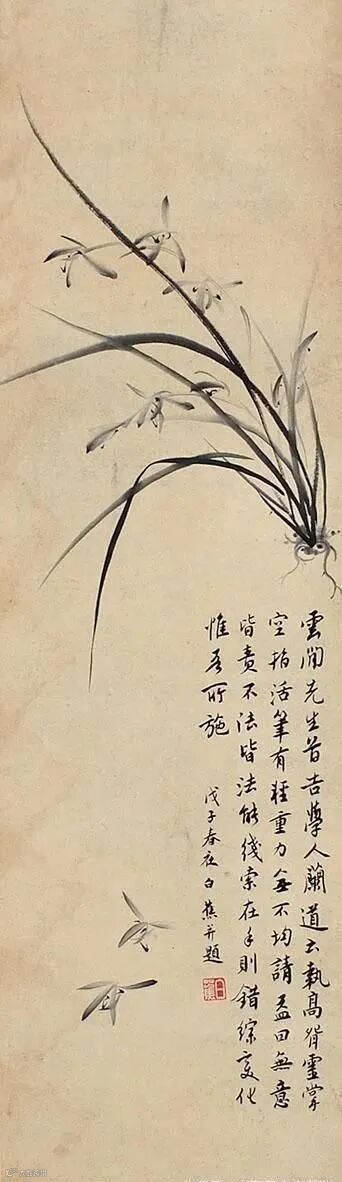 雲間先生昔告學人蘭道云執高背靈掌
空指活筆有輕重力無不均請益曰無意
皆責不法皆法能線索在手則錯綜變化
惟吾所施
戊子春在白蕉并題